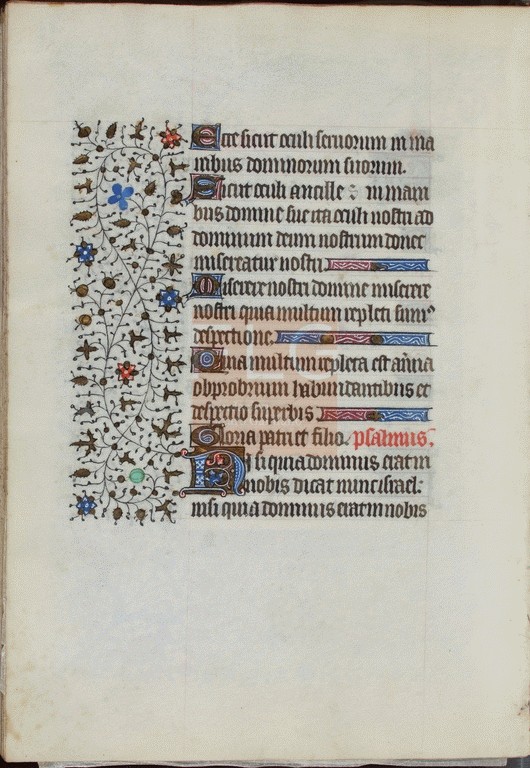 Ecce sicut oculi seruorum in ma
nibus dominorum suorum.
Sicut oculi ancille : in mani
bus domine sue ita oculi nostri ad
dominum deum nostrum donec
misereatur nostri
Miserere nostri domine miserere
nostri quia multum repleti sumꝰ
despectione
Quia multum repleta est aīa
obprobrium habundantibus et
despectio superbis
Gloria patri et filio. psalmus.
Nisi quia dominus erat in
nobis dicat nunc israel:
nisi quia dominus erat in nobis